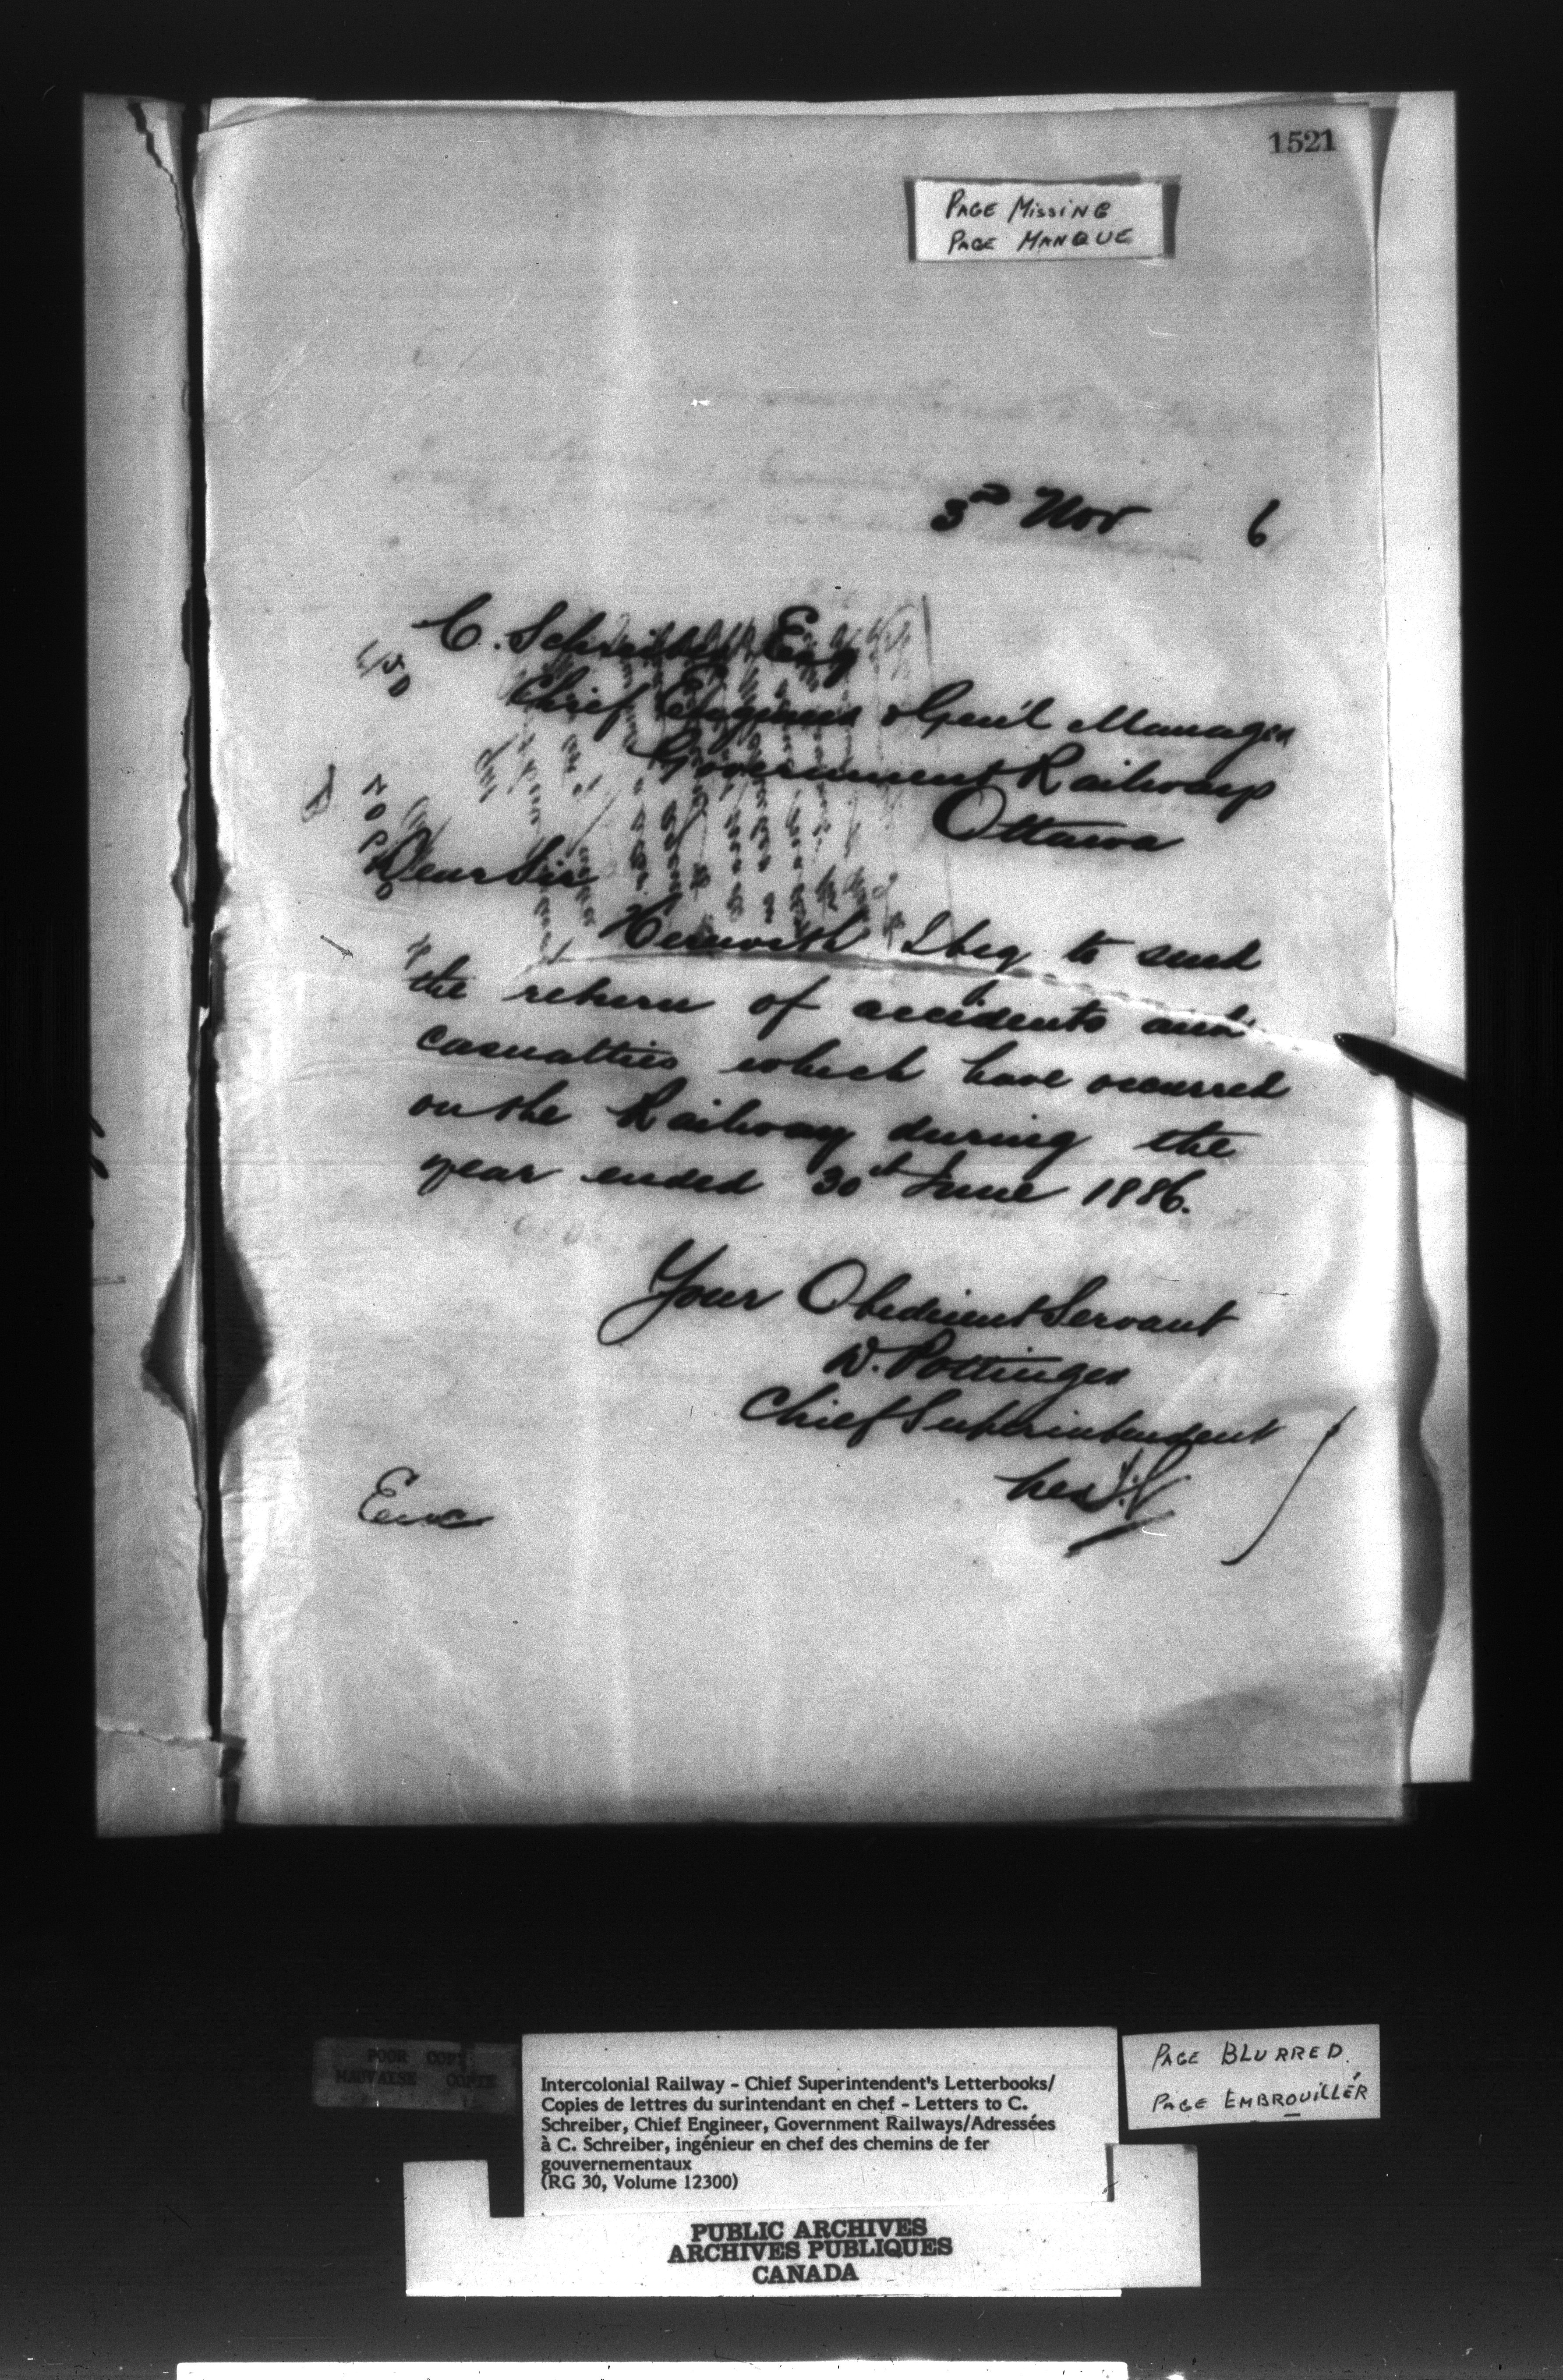 1521
PAGE MISSING
PAGE MANQUE
3rd Nov 6
C. Schreiber Esq
Chief Engineer & Gen'l Manager
Government Railways
Ottawa
Dear Sir
Herewith I beg to send
the return of accidents and
casualties which have occurred
on the Railway during the
year ended 30th June 1886.
Your Obedient Servant
D. Pottinger
Chief Superintendent
Enc
POOR COPY
MAUVAISE COPIE
Intercolonial Railway - Chief Superintendent's Letterbooks/
Copies de lettres du surintendant en chef - Letters to C.
Schreiber, Chief Engineer, Government Railways/Adressées
à C. Schreiber, ingénieur en chef des chemins de fer
gouvernementaux
(RG 30, Volume 12300)
PAGE BLURRED
PAGE EMBROUILLÉR
PUBLIC ARCHIVES
ARCHIVES PUBLIQUES
CANADA